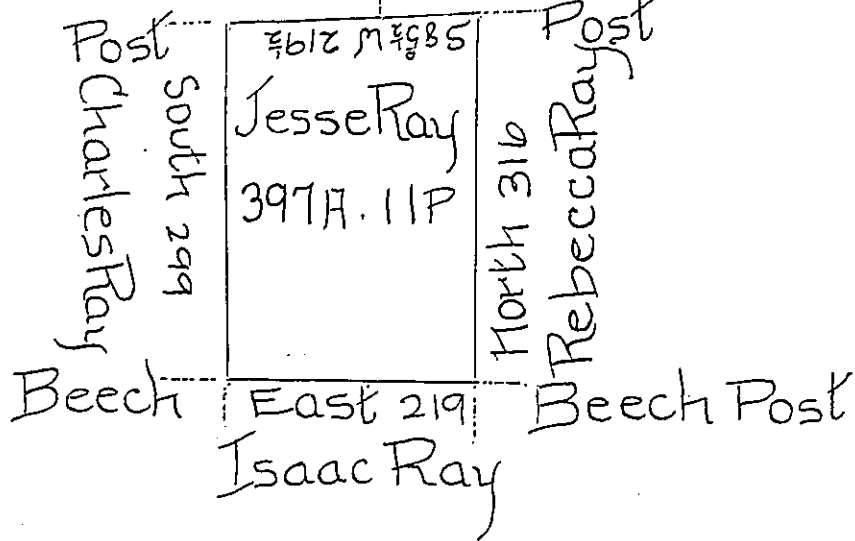 Post
Post
S85½°W 219½
Charles Ray
South 299
Jesse Ray
397A. 11P
North 316
Rebecca Ray
Beech
East 219
Beech Post
Isaac Ray